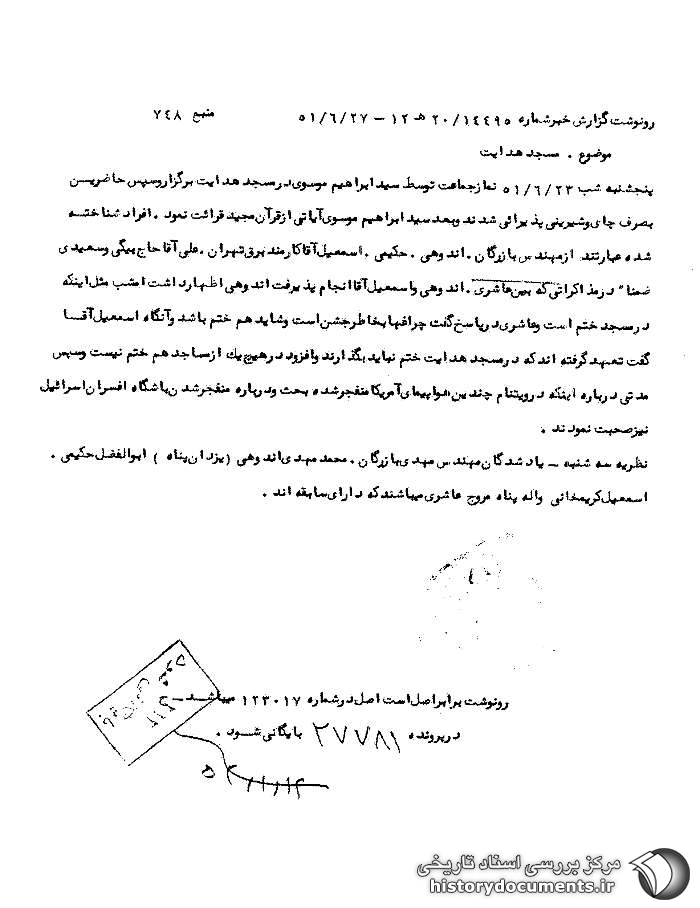 رونوشت گزارش خبر شماره ۲۰/۱٤٤۹٥ هـ ۱۲ – ٥۱/٦/۲۷ منبع ۷٤۸
موضوع . مسجد هدایت
پنجشنبه شب ٥۱/٦/۲۳ نماز جماعت توسط سید ابراهیم موسوی در مسجد هدایت برگزار و سپس حاضریـن
بصرف چای و شیرینی پذیرائی شدند و بعد سید ابراهیم موسوی آیاتی از قرآن مجید قرائت نمود . افراد شناختـه
شده عبارتند از مهندس بازرگان . اندوهی . حکیمی . اسمعیل آقا کارمند برق تهران . علی آقا حاج بیگی و سعیدی
ضمنا" در مذاکراتی که بین عاشری . اندوهی و اسمعیل آقا انجام پذیرفت اندوهی اظهار داشت امشب مثل اینکه
در مسجد ختم است و عاشری در پاسخ گفت چراغها بخاطر جشن است و شاید هم ختم باشد و آنگاه اسمعیل آقـا
گفت تعهد گرفته اند که در مسجد هدایت ختم نباید بگذارند و افزود در هیچ یك از مساجد هم ختم نیست و سپس
مدتی درباره اینکه در ویتنام چندین هواپیمای آمریکا منفجر شده بحث و درباره منفجر شدن باشگاه افسران اسرائیل
نیز صحبت نمودند .
نظریه سه شنبه – یاد شدگان مهندس مهدی بازرگان . محمد مهدی اندوهی ( یزدان پناه ) ابوالفضل حکیمی .
اسمعیل کریمخانی واله پناه مروج عاشری میباشند که دارای سابقه اند .
رونوشت برابر اصل است اصل در شماره ۱۲۳۰۱۷ میباشد –
در پرونده ۲۷۷۸۱ بایگانی شود .
مرکز بررسی اسناد تاریخی
historydocuments.ir